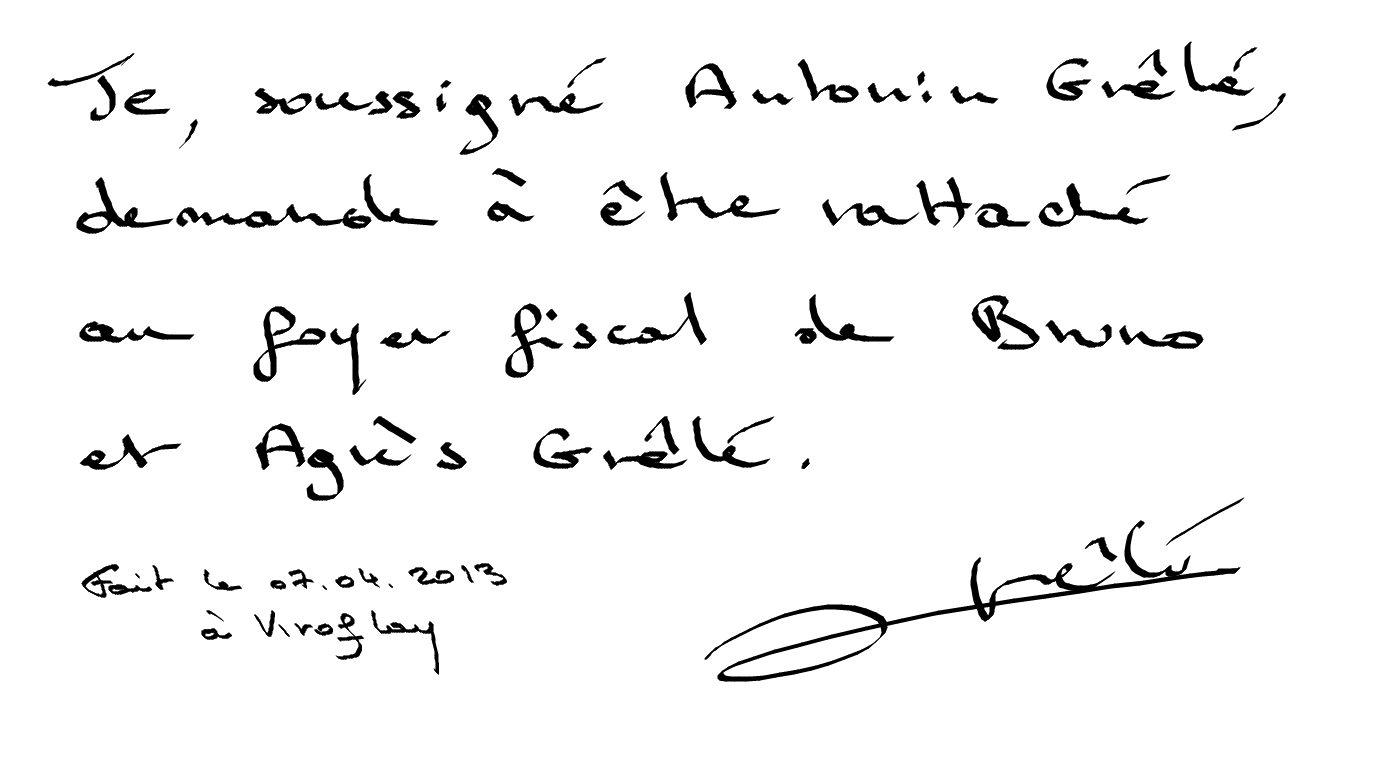 Je, soussigné Antonin Grêlé,
demande à être rattaché
au foyer fiscal de Bruno
et Agnès Grêlé.
Fait le 07.04.2013
à Viroflay
Grêlé